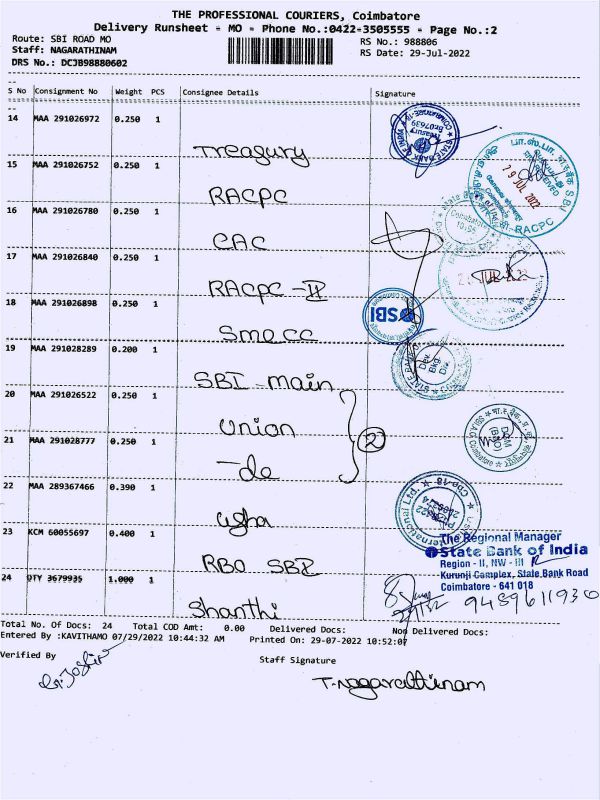 THE PROFESSIONAL COURIERS, Coimbatore
Delivery Runsheet - MO - Phone No.:0422-3505555 - Page No.:2
Route: SBI ROAD MO
RS No.: 988806
Staff: NAGARATHINAM
RS Date: 29-Jul-2022
DRS No.: DCJB98880602
S No Consignment No Weight PCS Consignee Details Signature
14 MAA 291026972 0.250 1
Treasury
15 MAA 291026752 0.250 1
RACPC
16 MAA 291026780 0.250 1
CAC
17 MAA 291026840 0.250 1
RACPC-II
18 MAA 291026898 0.250 1
Smecc
19 MAA 291028289 0.200 1
SBI-main
20 MAA 291026522 0.250 1
Union
21 MAA 291028777 0.250 1
-do
2
22 MAA 289367466 0.390 1
Usha
23 KCM 60055697 0.400 1
RBO SBI
24 QTY 3679935 1.000 1
Shanthi
29 JUL 2022
RACPC
SBI
Dev.
Bkg.
Div.
The Regional Manager
State Bank of India
Region - II, NW - III
Kurunji Complex, State Bank Road
Coimbatore - 641 018
Total No. Of Docs: 24 Total COD Amt: 0.00 Delivered Docs: Non Delivered Docs:
Entered By :KAVITHAMO 07/29/2022 10:44:32 AM Printed On: 29-07-2022 10:52:07
Verified By
Staff Signature
T.Nagarathinam